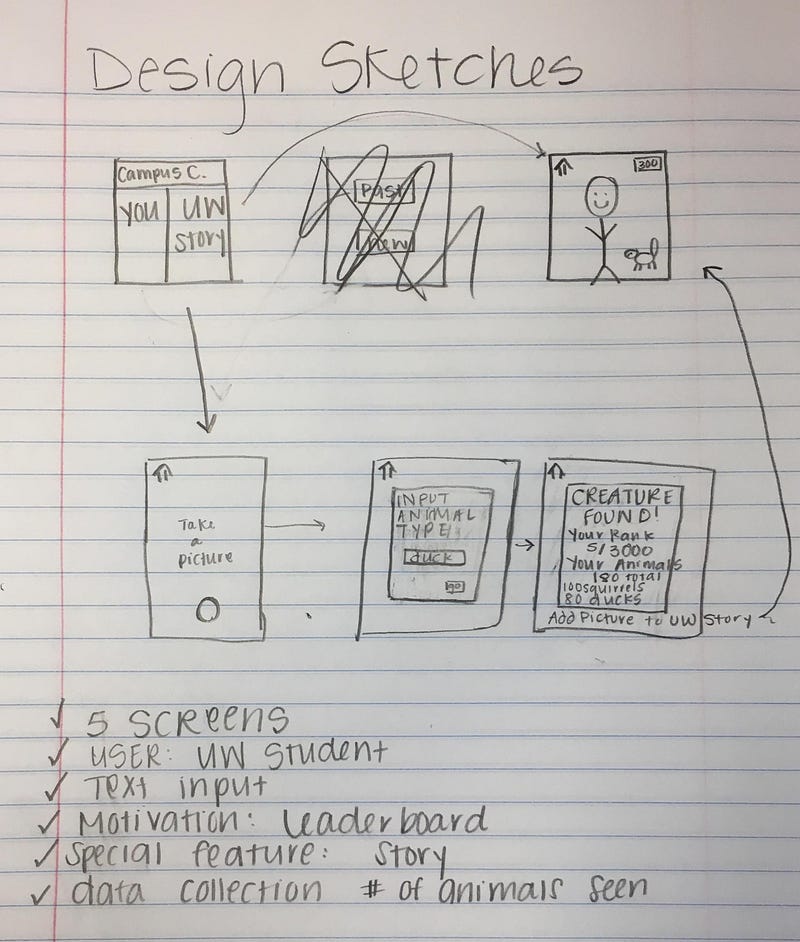 Design Sketches
Campus C.
you
UW
story
Past
new
300
Take
a
picture
INPUT
ANIMAL
TYPE
duck
go
CREATURE
FOUND!
Your Rank
5/3000
Your Animals
180 total
100squirrels
80 ducks
Add Picture to UW Story
✓ 5 SCREENS
✓ USER: UW Student
✓ Text input
✓ Motivation: Leaderboard
✓ Special feature: Story
✓ data collection # of animals seen